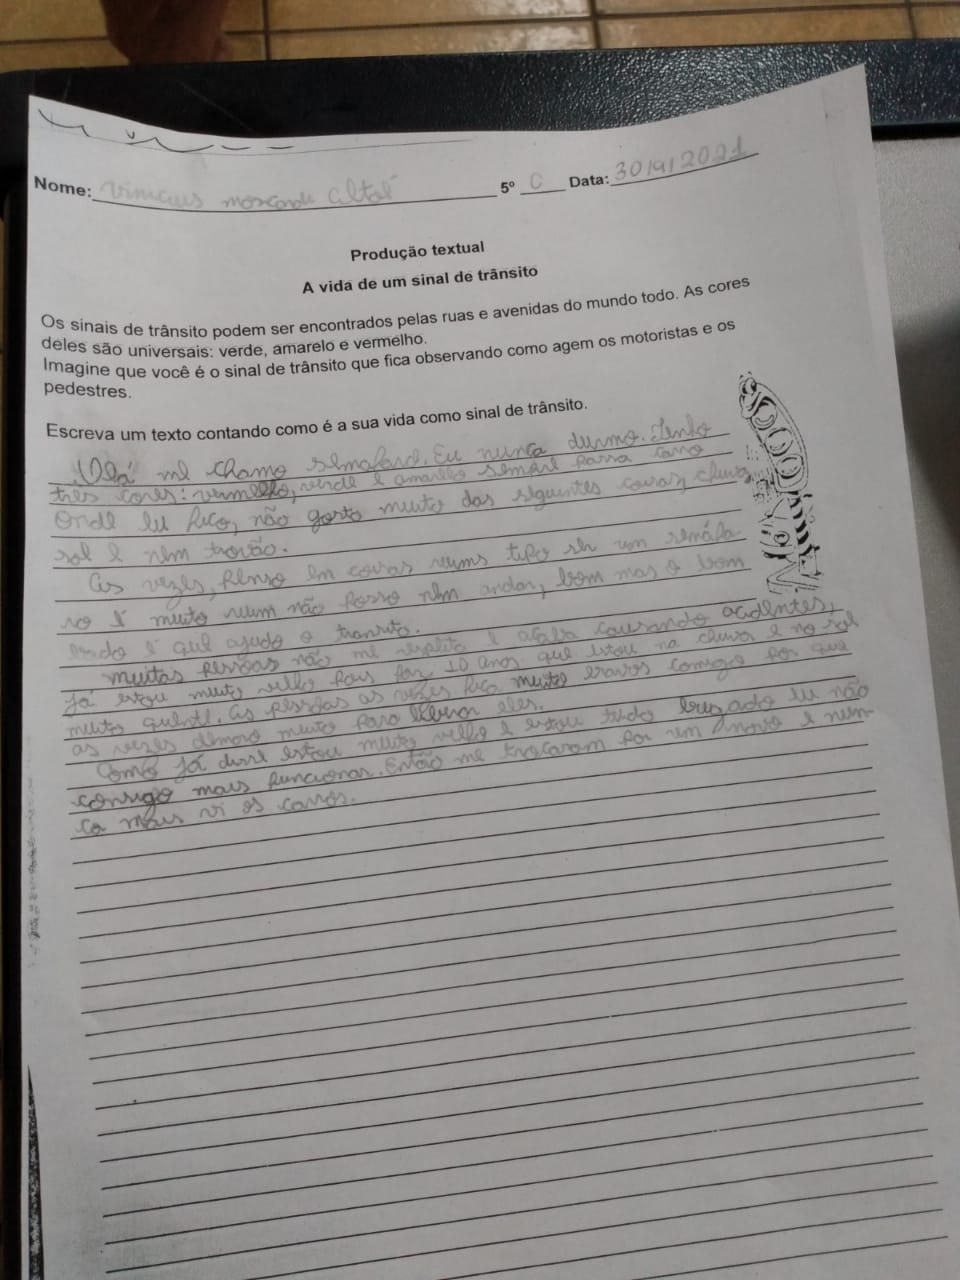 Nome: 5º C Data: 30/9/2021
Produção textual
A vida de um sinal de trânsito
Os sinais de trânsito podem ser encontrados pelas ruas e avenidas do mundo todo. As cores
deles são universais: verde, amarelo e vermelho.
Imagine que você é o sinal de trânsito que fica observando como agem os motoristas e os
pedestres.
Escreva um texto contando como é a sua vida como sinal de trânsito.
Olá me chamo semaforo. Eu nunca durmo. Tenho
três cores: vermelho, verde e amarelo sempre passa carro
Onde eu fico, não gosto muito das siguintes coisas, chuva,
sol e nem trovão.
As vezes, penso em coisas ruims tipo ser um semáfa
ro é muito ruim não posso nem andar, bom mas o bom
lado é que ajudo o transito.
muitas pessoas não me respeita e acaba causando acidentes,
já estou muito velho pois faz 10 anos que estou na chuva e no sol
muito quente. As pessoas as vezes fica muito bravos comigo por que
as vezes demoro muito para liberar eles.
Como já disse estou muito velho e estou todo eu não
consigo mais funcionar. Então me trocaram por um novo e nun
ca mais vi os carros.